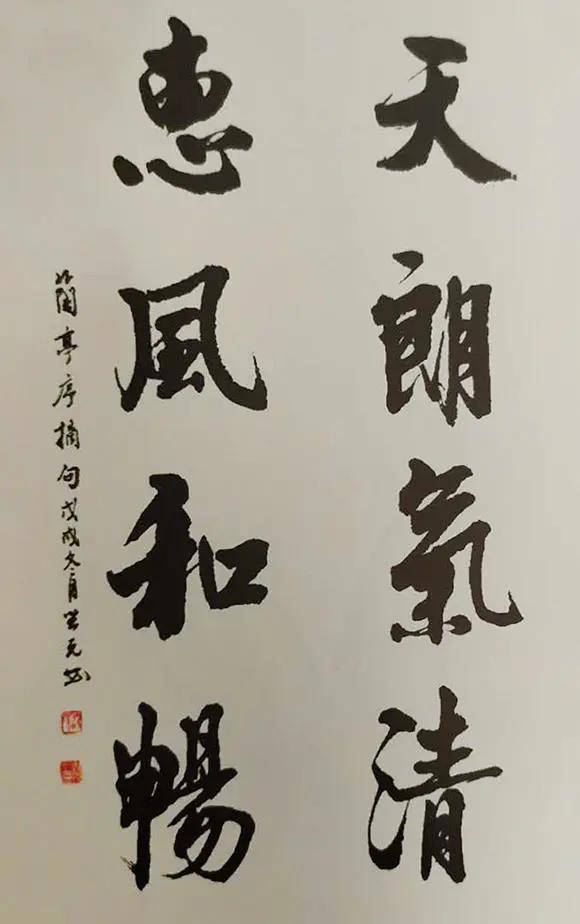 天朗氣清
惠風和暢
蘭亭序摘句戊戌冬月